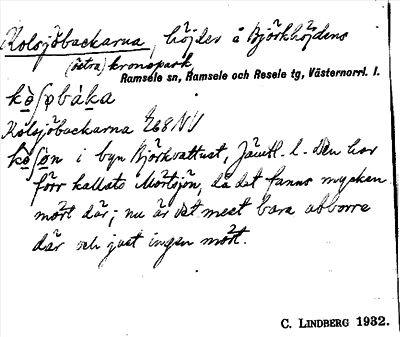 Kolsjöbackarna, höjder å Björkhöjdens
(östra) kronopark
Ramsele sn, Ramsele och Resele tg, Västernorrl. l.
Kolsjöbackarna 268 NV
i byn Björkvattnet, Jämtl. l. Den har
förr kallats Mörtsjön, då det fanns mycken
mört där; nu är det mest bara abborre
där och just ingen mört.
C. LINDBERG 1932.